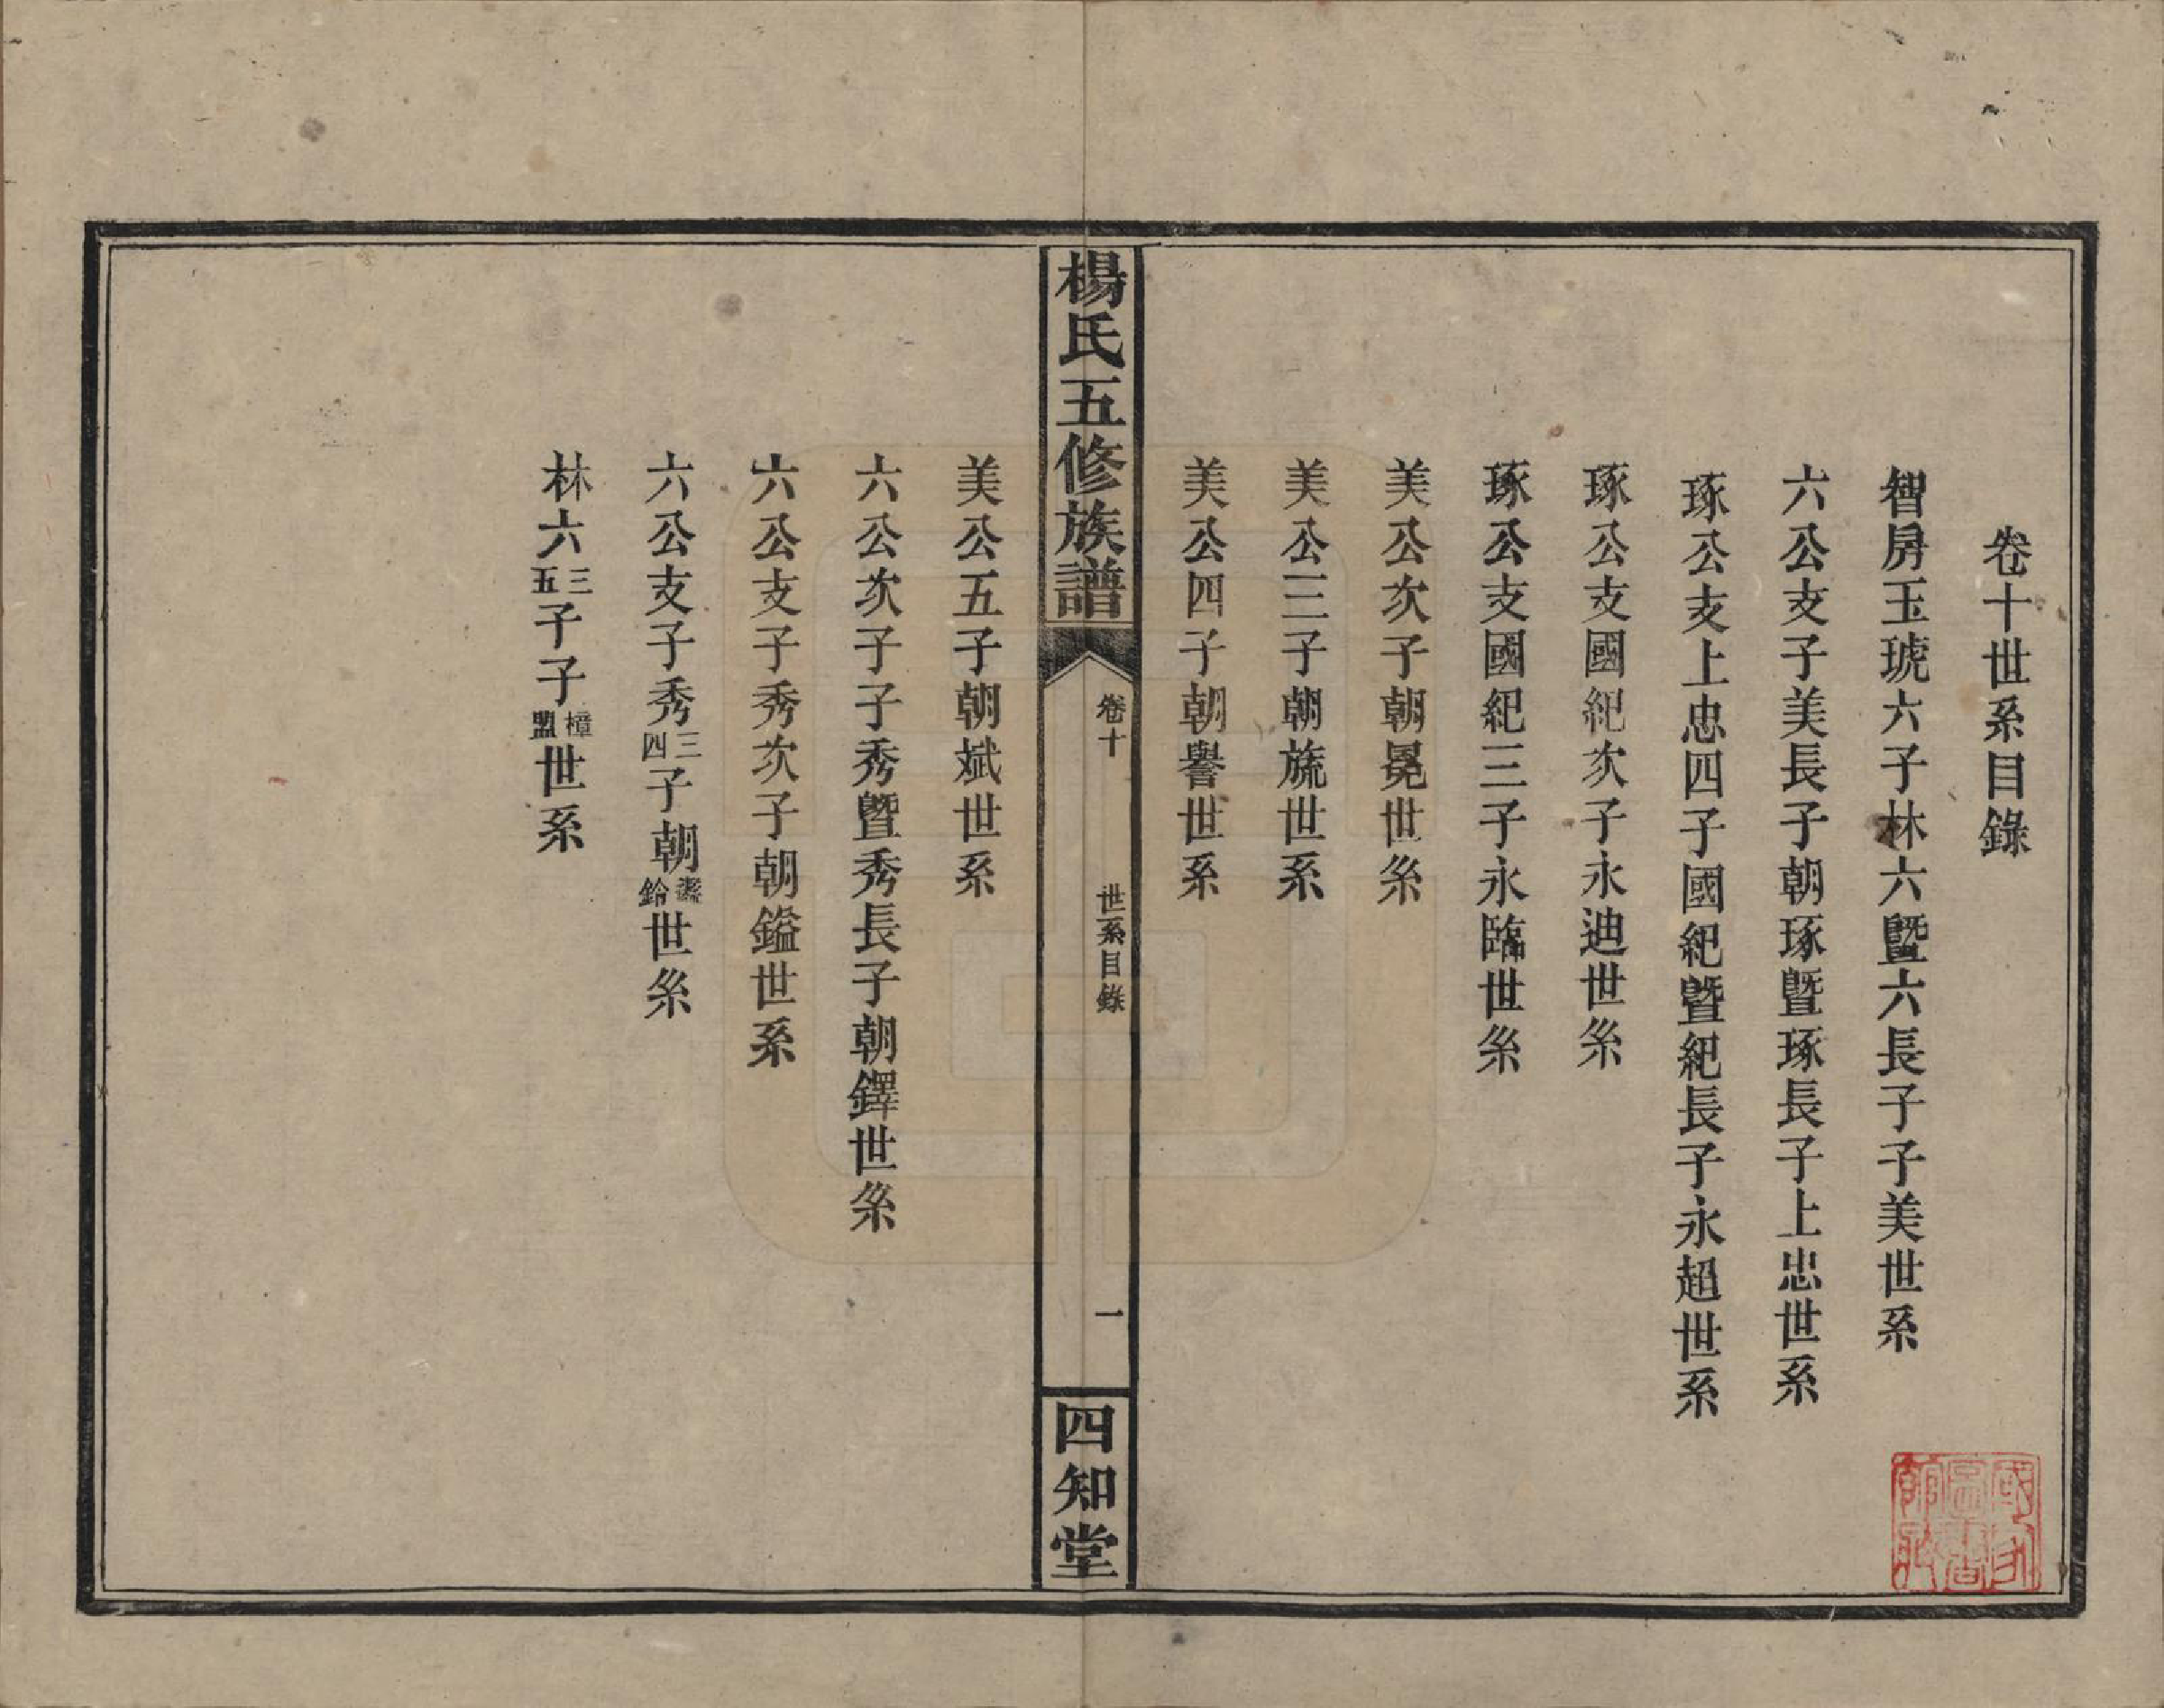 卷十世系目錄
智房玉琥六子林六暨六長子子美世系
六公支子美長子朝琢暨琢長子上忠世系
琢公支上忠四子國紀暨紀長子永超世系
琢公支國紀次子永迪世系
琢公支國紀三子永臨世系
美公次子朝冕世系
美公三子朝旒世系
美公四子朝譽世系
楊氏五修族譜
卷十
世系目錄
一
四知堂
美公五子朝斌世系
六公次子子秀暨秀長子朝鐸世系
六公支子秀次子朝鎰世系
六公支子秀三四子朝鈴世系
林六三五子子樟盟世系